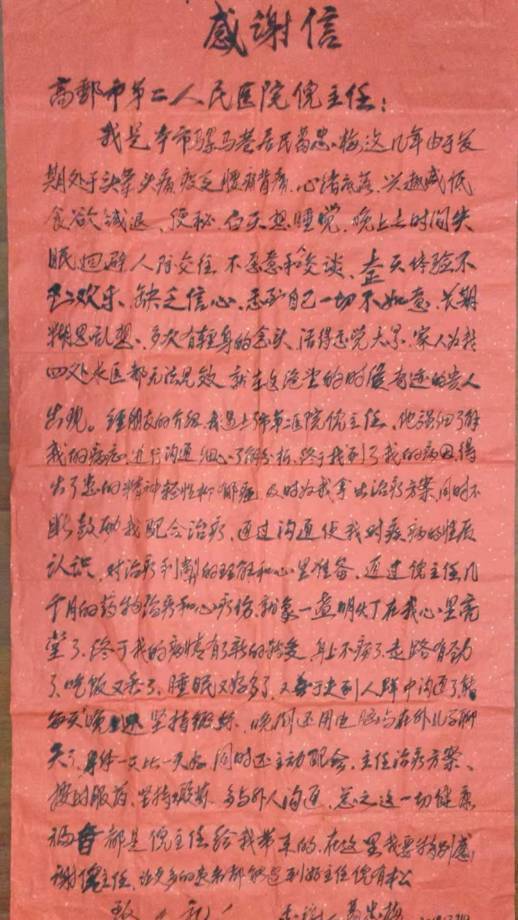 感谢信
高邮市第二人民医院倪主任：
我是本市骡马巷居民葛忠梅这几年由于长
期处于头晕头痛疲乏腰酸背痛、心情底落、兴趣减低
食欲减退、便秘、白天想睡觉、晚上长时间失
眠回避人际交往、不愿意和人交谈、整天体验不
到欢乐、缺乏信心、感到自己一切不如意、长期
胡思乱想、多次有轻身的念头、活得感觉太累、家人为我
四处求医都无法见效、就在绝望的时候奇迹的贵人
出现。经朋友的介绍、我遇上了第二医院倪主任、他详细了解
我的病志、进行沟通细心了解分析、终于找到了我的病因、得
出了患的精神轻性抑郁症、及时给我拿出治疗方案、同时不
断鼓励我配合治疗、通过沟通使我对疾病的性质
认识、对治疗利弊的理解和心里准备、通过倪主任几
个月的药物治疗和心疗后、就象一盏明灯在我心里亮
堂了、终于我的病情有了新的转变、身上不痛了、走路有劲
了、吃饭又香了、睡眠又好多了、又善于走到人群中沟通了、
每天晚坚持锻炼、晚间还用电脑与在外儿子聊
天了、身体一天比一天好、同时还主动配合、主任治疗方案、
按时服药、坚持锻炼、多与外人沟通、总之这一切健康
福音都是倪主任给我带来的、在这里我要特别感
谢倪主任、让更多的患者都能遇到好主任倪有松
致 礼！ 葛忠梅